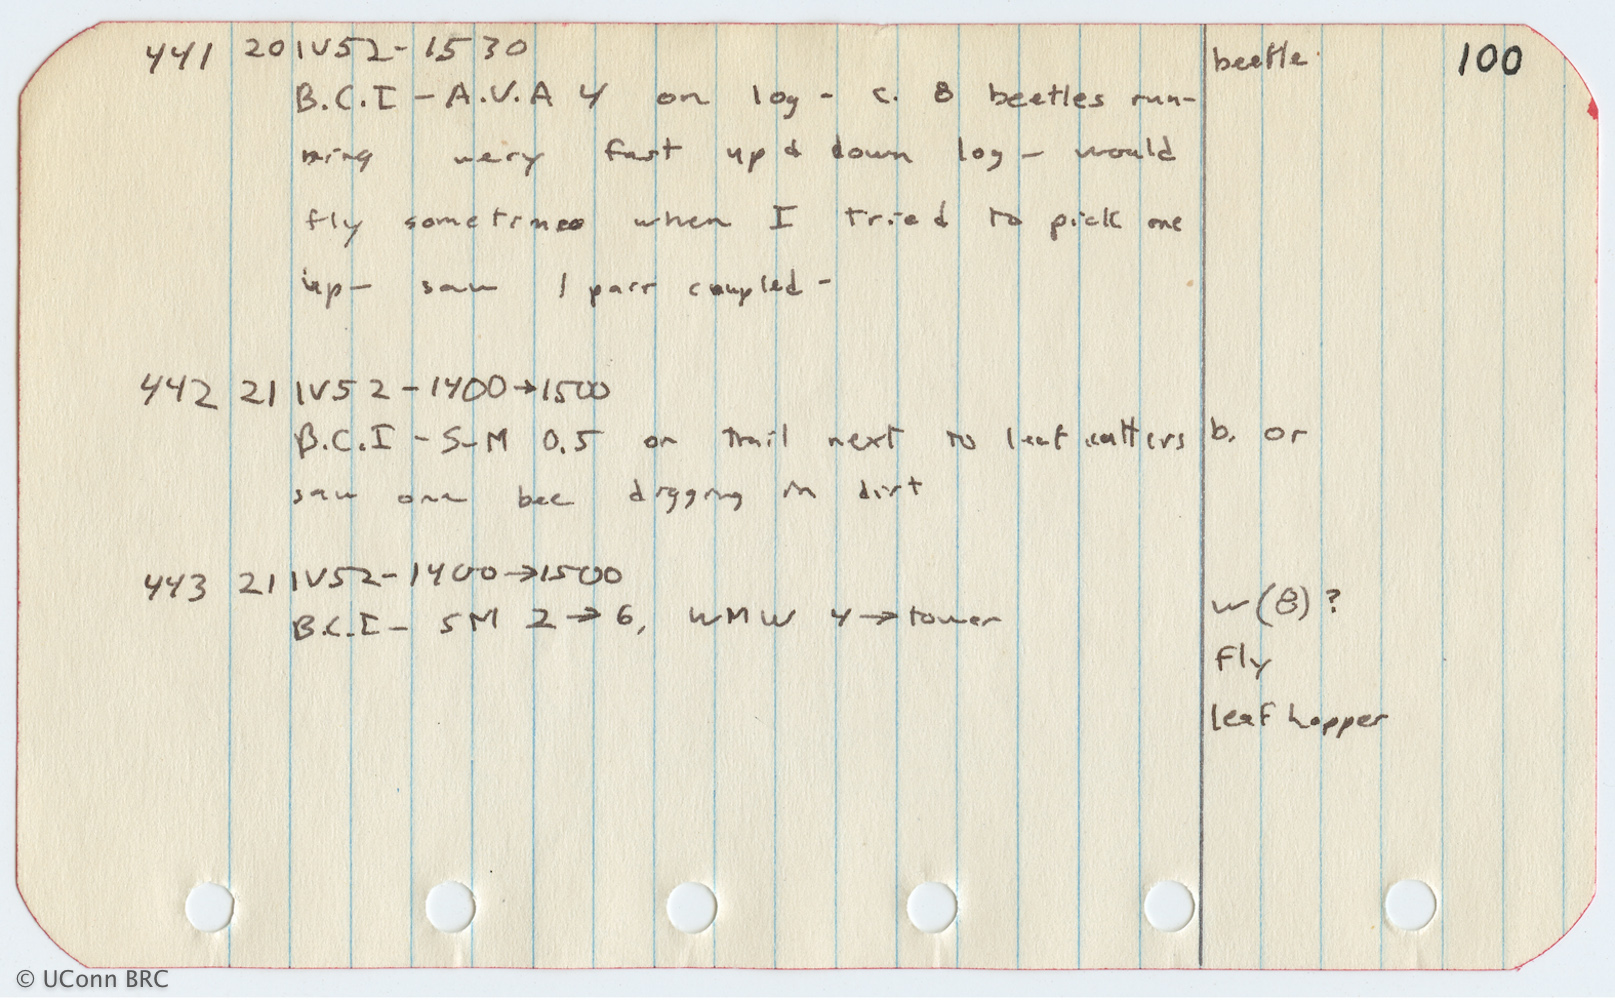 441 20 IV 52 - 1530 beetle 100
B.C.I - A.V.A 4 on log - c. 8 beetles run-
ning very fast up & down log - would
fly sometimes when I tried to pick one
up - saw 1 pair coupled -
442 21 IV 52 - 1400 → 1500
B.C.I - S-M 0.5 on trail next to leaf cutters b. or
saw one bee digging in dirt
443 21 IV 52 - 1400 → 1500
w (8) ?
B.C.I - SM 2 → 6, WMW 4 → tower
fly
leaf hopper
© UConn BRC